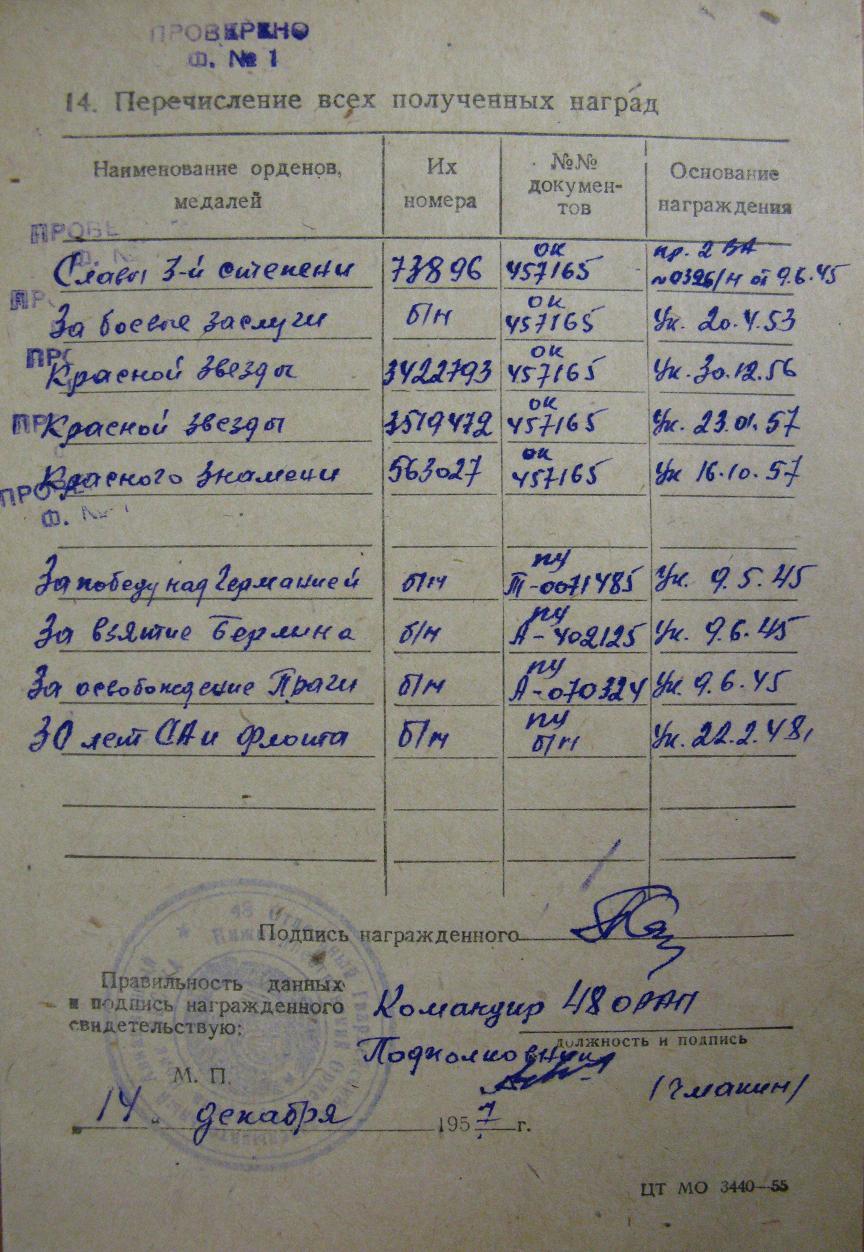 ПРОВЕРЕНО
Ф. № 1
14. Перечисление всех полученных наград
Наименование орденов, медалей
Их номера
№№ докумен-тов
Основание награждения
ПРОВЕ
Славы 3-й степени 73896 ок 457165 пр. 2 ВА №0396/н от 9.6.45
За боевые заслуги б/н ок 457165 Ук. 20.4.53
Красной Звезды 3422793 ок 457165 Ук. 30.12.56
Красной Звезды 3519472 ок 457165 Ук. 23.01.57
Красного Знамени 563027 ок 457165 Ук 16.10.57
Ф. № 1
За победу над Германией б/н пу Т-0071485 Ук. 9.5.45
За взятие Берлина б/н пу А-402125 Ук. 9.6.45
За освобождение Праги б/н пу А-070324 Ук. 9.6.45
30 лет СА и Флота б/н пу б/н Ук. 22.2.48
Подпись награжденного
Правильность данных
и подпись награжденного
свидетельствую:
Командир 48 ОРАП
должность и подпись
Подполковник
(Чмакин)
М. П.
14 „ декабря 1957 г.
ЦТ МО 3440—55